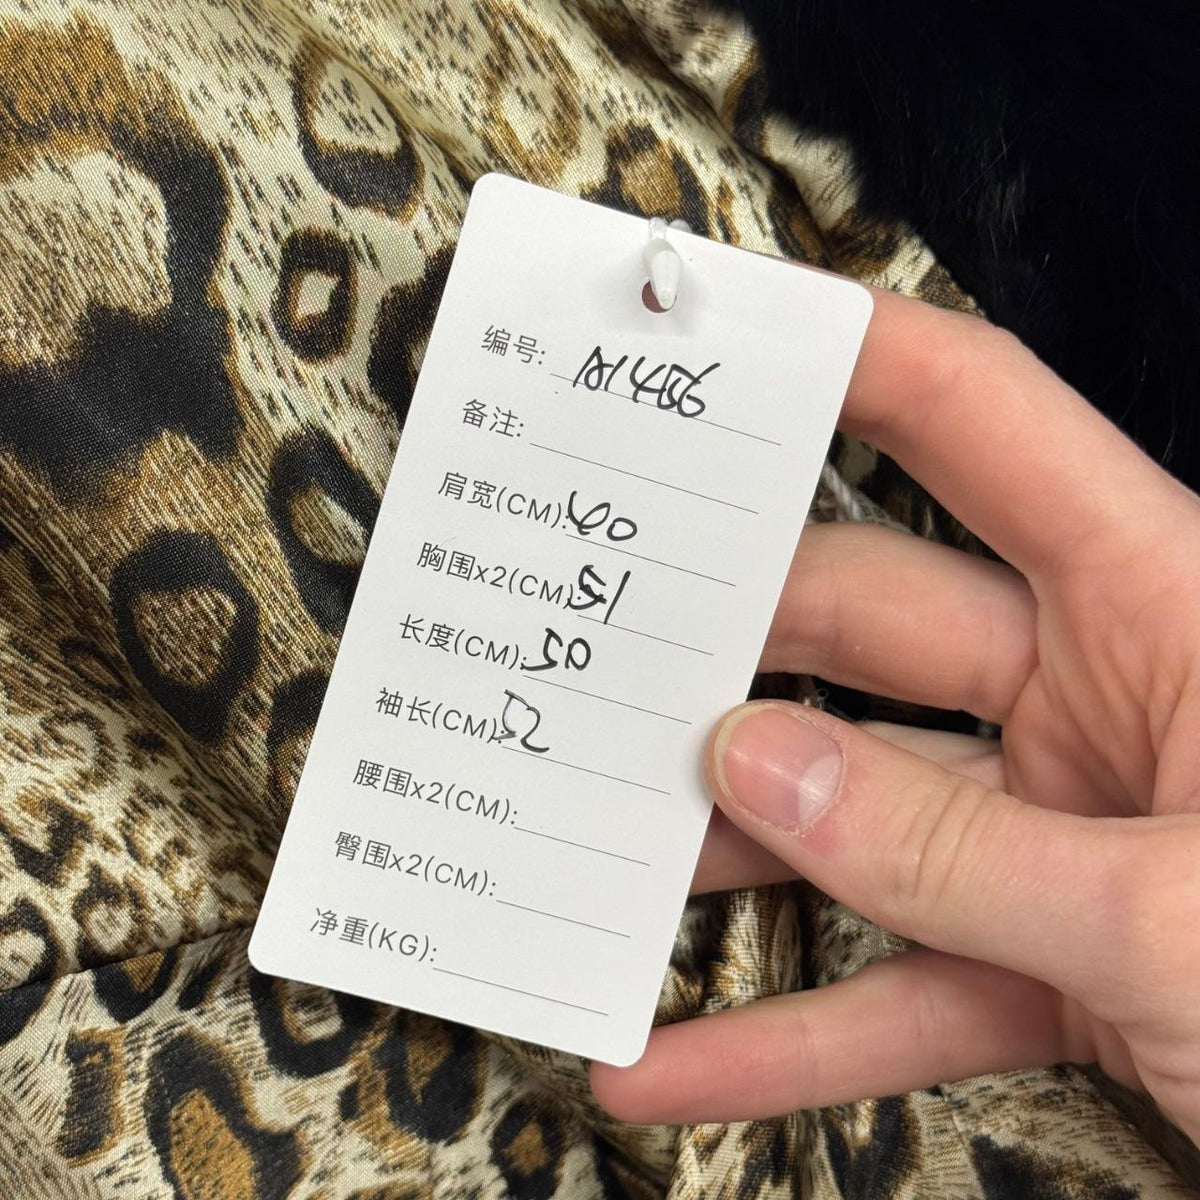 编号: A1456
备注:
肩宽(CM): 40
胸围x2(CM): 51
长度(CM): 50
袖长(CM): 52
腰围x2(CM):
臀围x2(CM):
净重(KG):